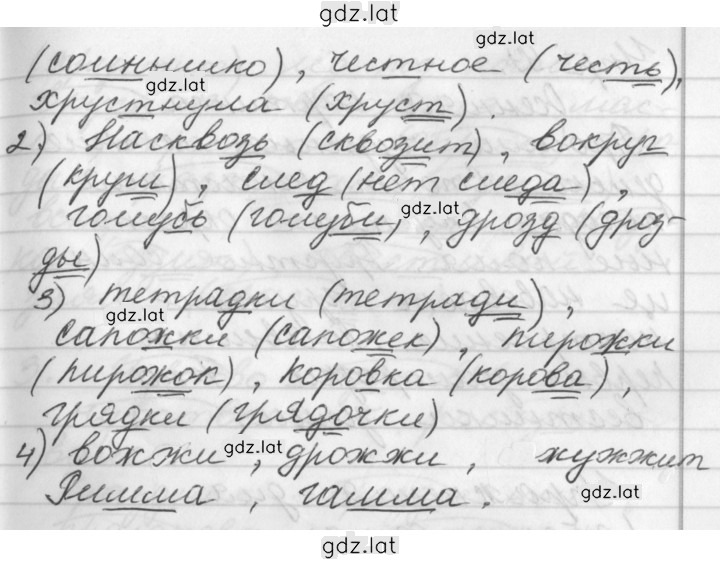 gdz.lat
gdz.lat
(солнышко), честное (честь),
gdz.lat
хрустнула (хруст).
2) Насквозь (сквозит), вокруг
(круги), след (нет следа),
голубь (голуби) gdz.lat, дрозд (дроз-
ды)
3) тетрадки (тетради),
gdz.lat
сапожки (сапожек), пирожки
(пирожок), коровка (корова),
грядки (грядочки)
4) вожжи gdz.lat, дрожжи, жужжит
Римма, гамма. gdz.lat
gdz.lat